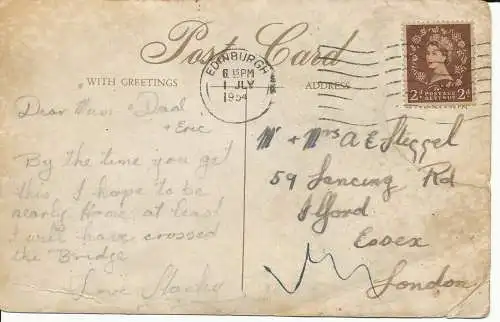 Post Card
WITH GREETINGS
ADDRESS
EDINBURGH
6.15PM
1 JLY
1954
2D POSTAGE REVENUE 2D
Dear Mum & Dad
+ Eric
By the time you get
this, I hope to be
nearly Home, at least
I will have crossed
the Bridge
Love
Mr + Mrs A E
59 Lancing Rd
Ilford
Essex
London